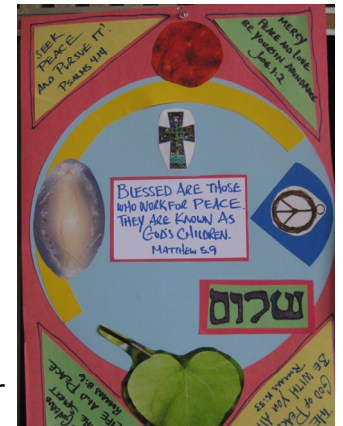 SEEK
PEACE
AND PURSUE IT!
PSALMS 4:14
MERCY
PEACE AND LOVE
BE YOURS IN ABUNDANCE
JUDE 1:2
BLESSED ARE THOSE
WHO WORK FOR PEACE.
THEY ARE KNOWN AS
GOD'S CHILDREN.
MATTHEW 5:9
שלום
r
SPIRIT
LIFE AND PEACE
ROMANS 8:6
THE
GOD OF PEACE
BE WITH YOU
ROMANS 15:33